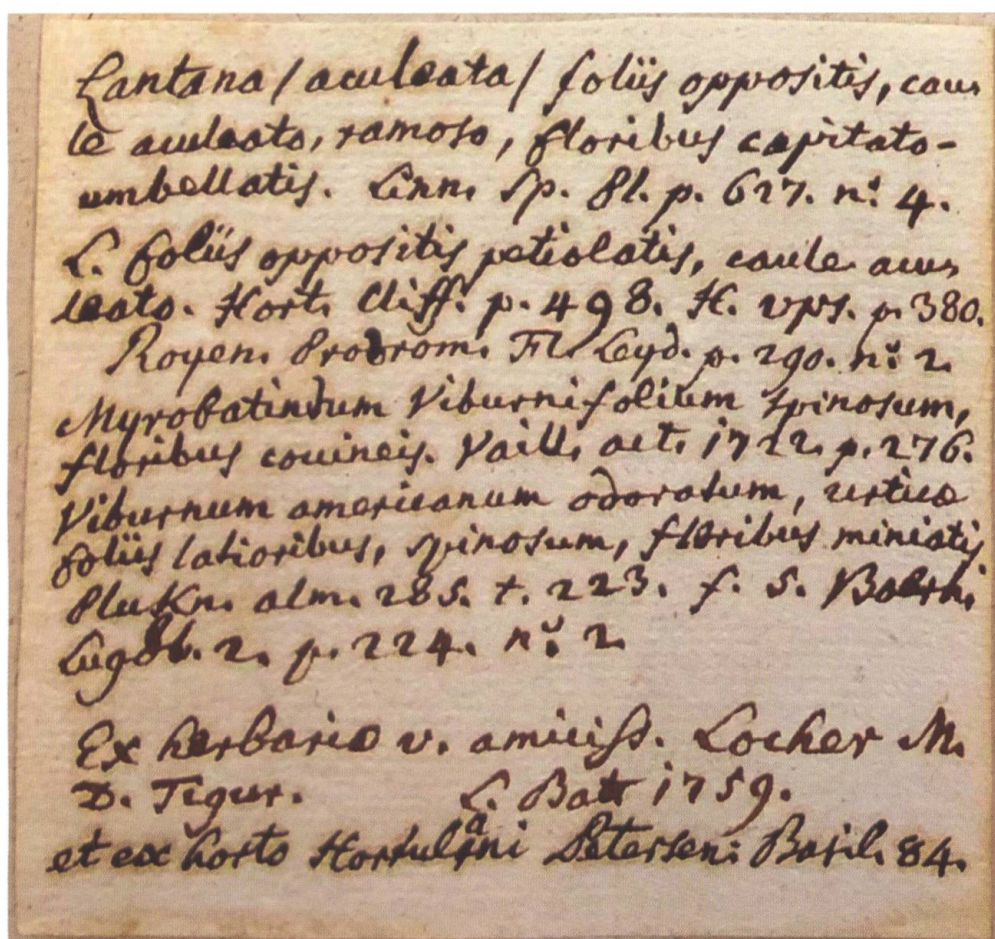 Lantana /aculeata/ foliis oppositis, cau-
le aculeato, ramoso, floribus capitato-
umbellatis. Linn. Sp. Pl. p. 627. n: 4.
L. foliis oppositis petiolatis, caule acu-
leato. Hort. Cliff. p. 498. H. ups. p. 380.
Royen. Prodrom. Fl. Leyd. p. 290. n: 2.
Myrobatindum Viburnifolium spinosum,
floribus coccineis. Vaill. act. 1722. p. 276.
Viburnum americanum odoratum, urticæ
foliis latioribus, spinosum, floribus miniatis
Plukn. alm. 285. t. 223. f. 5. Boerh.
Lugdb. 2. p. 224. n: 2.
Ex herbario v. amiciss. Locher M.
D. Tigur. L. Batt 1759.
et ex horto Hortulani Petersen: Basil. 84.